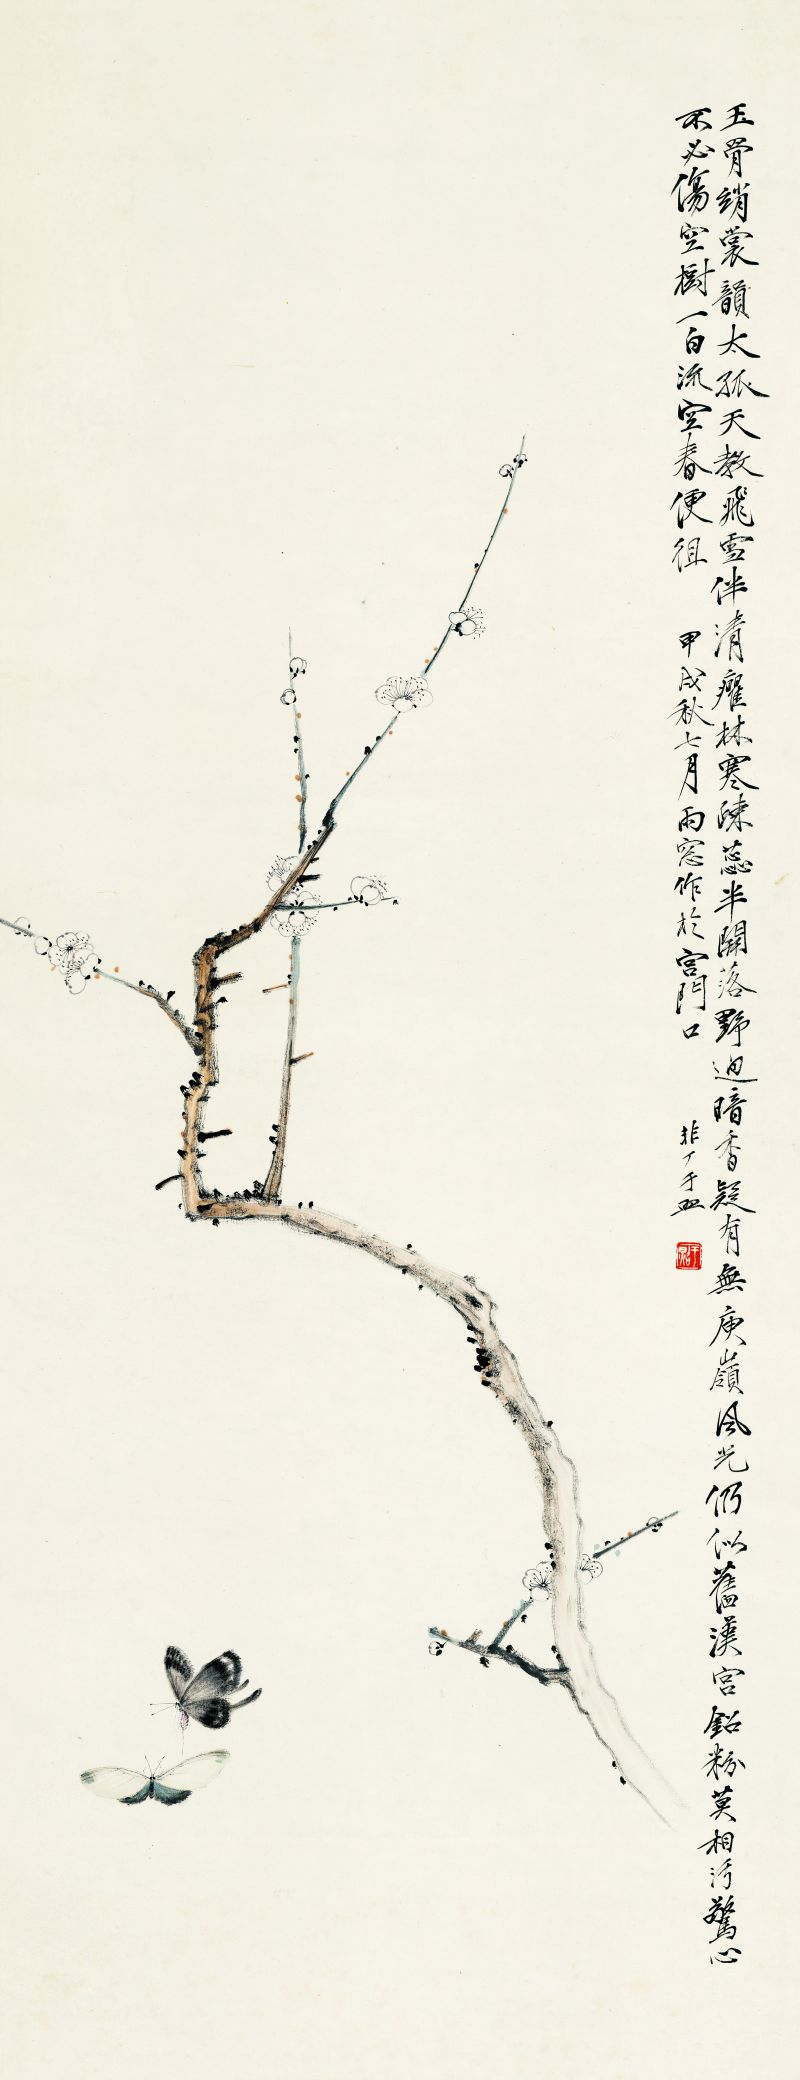 玉骨綃裳韻太孤天教飛雪伴清癯林寒疎蕊半開落野迥暗香疑有無庾嶺風光仍似舊漢宮鉛粉莫相污驚心
不必傷空樹一白流空春便徂 甲戌秋七月雨窓作於宮門口 非厂于照